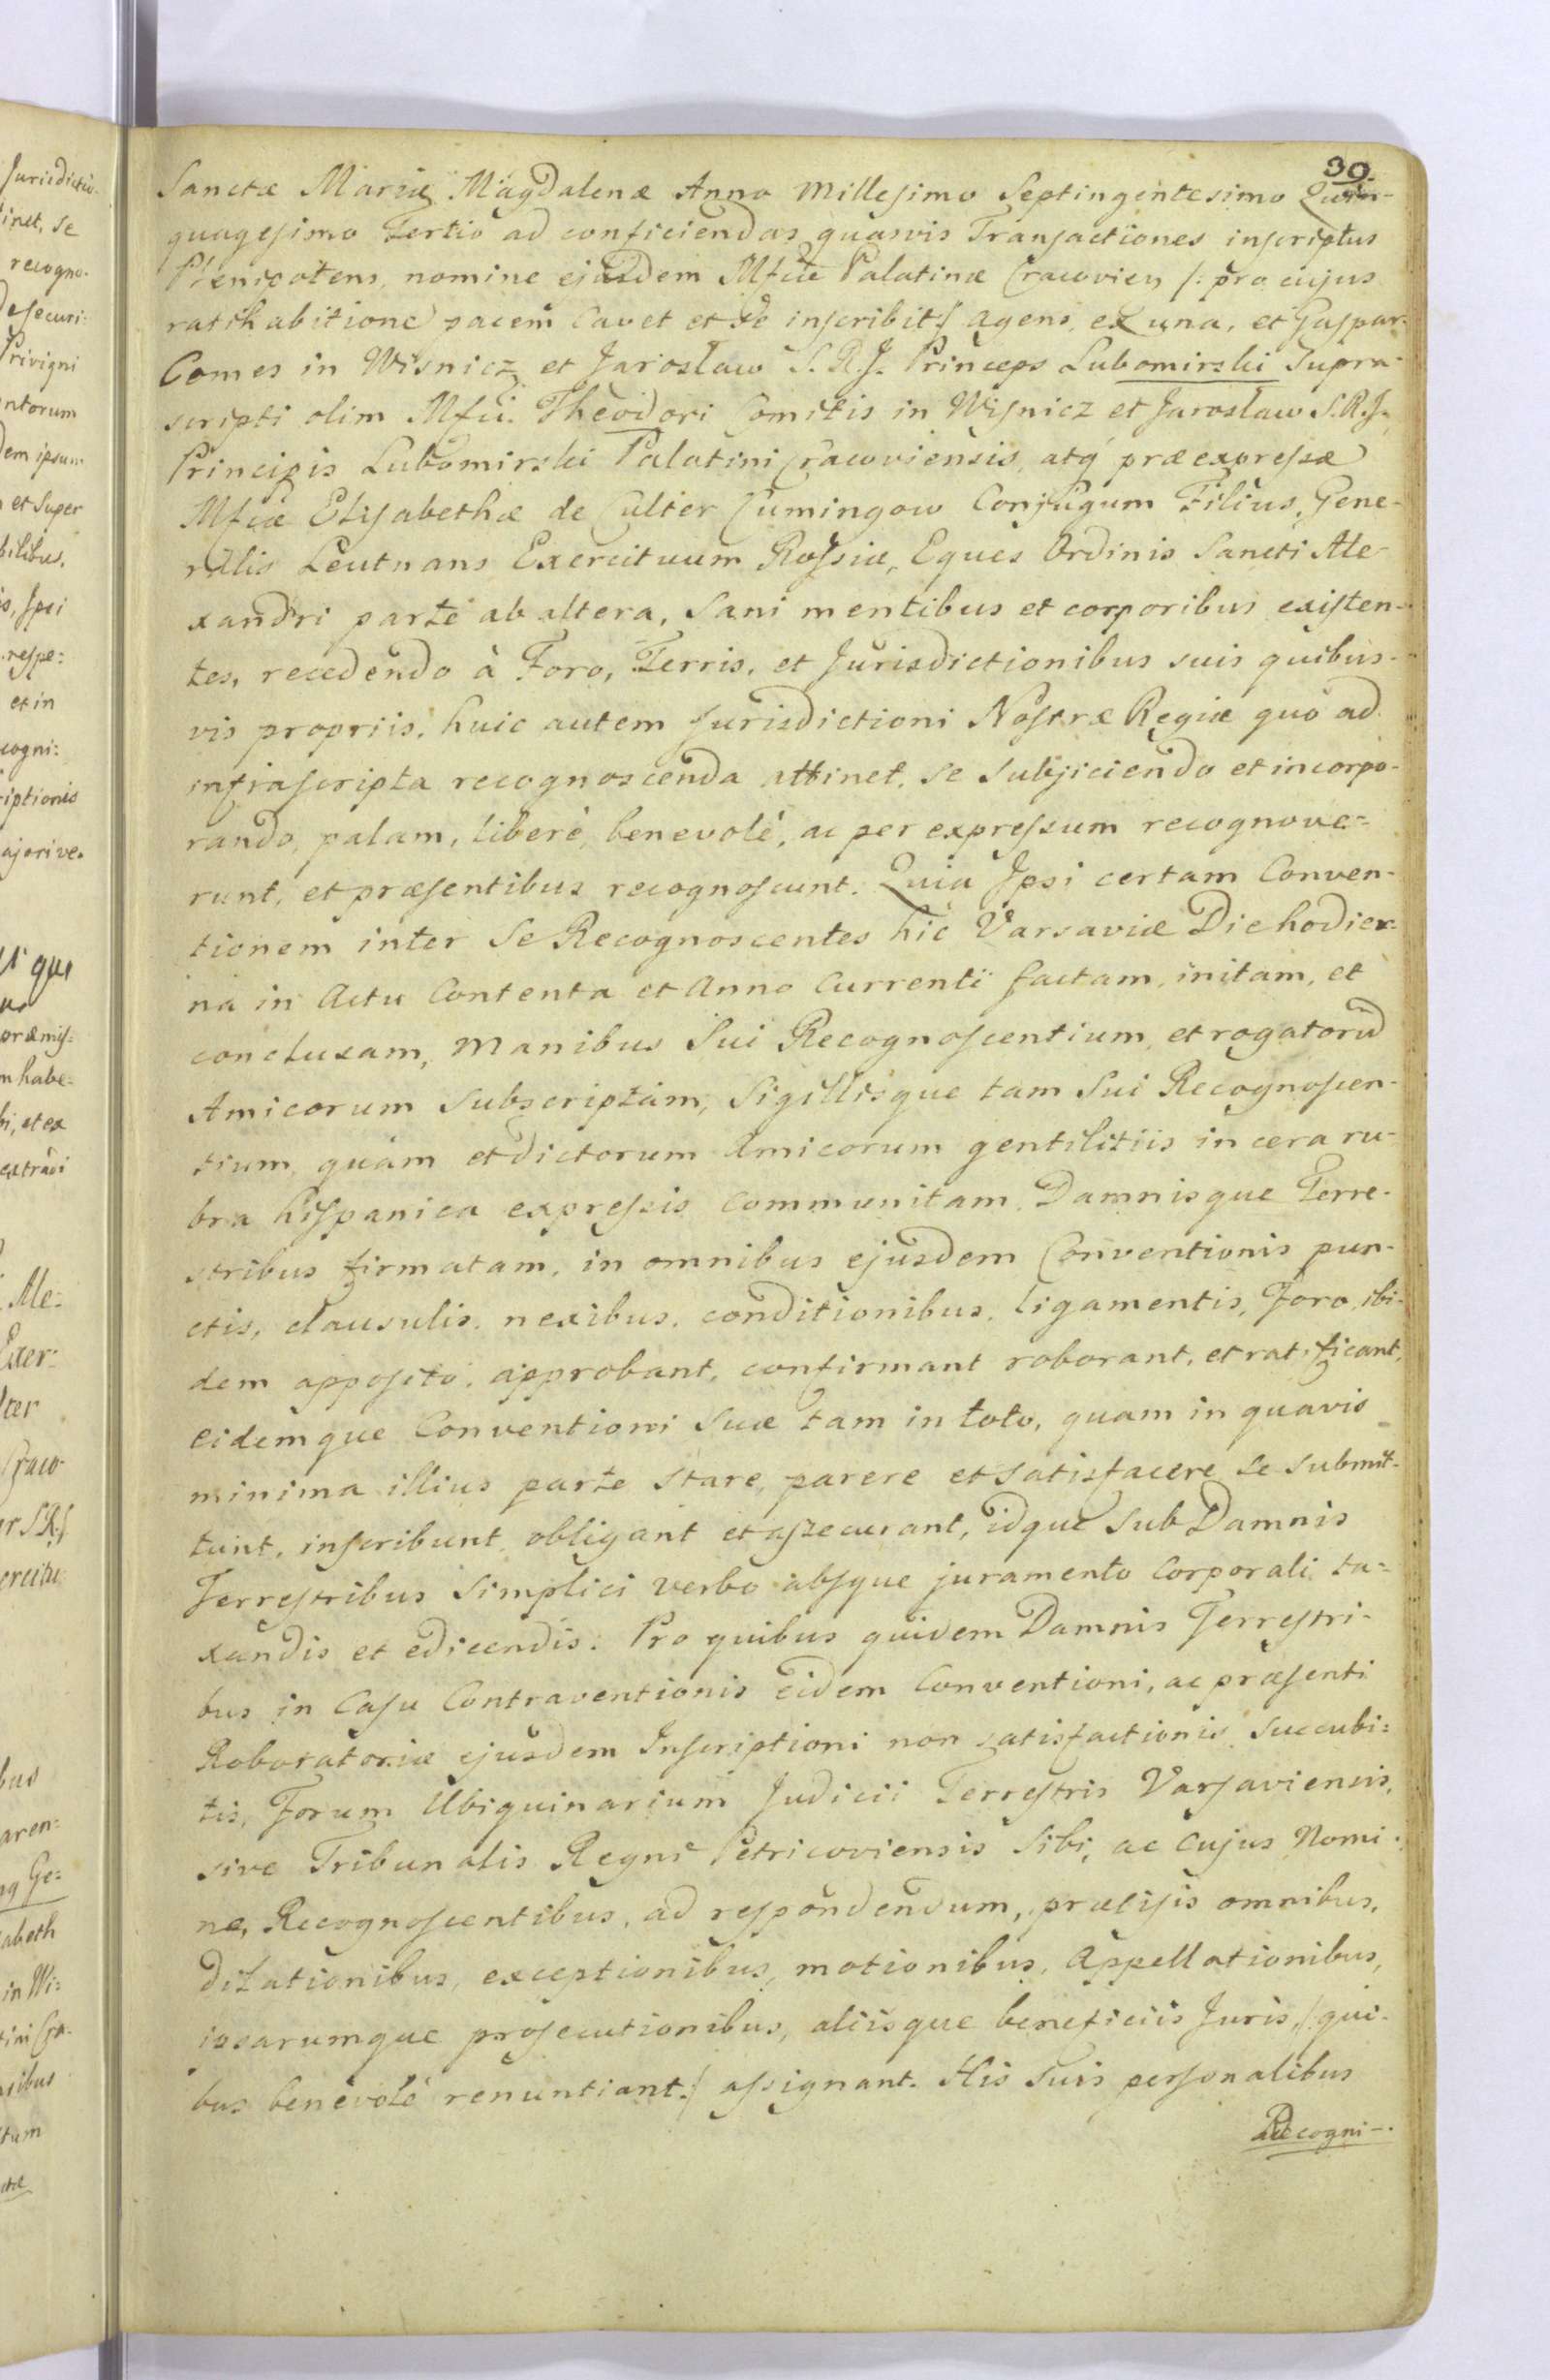 39.
Sanctæ Mariæ Magdalenæ Anno Millesimo Septingentesimo Quin-
quagesimo Tertio ad conficiendas quasvis Transactiones inscriptus
Plenipotens, nomine ejusdem Mfcæ Palatinæ Cracovien /: pro cujus
ratihabitione pacem cavet et se inscribit :/ agens, ex una, et Gaspar
Comes in Wisnicz et Jarosław S. R. J. Princeps Lubomirski Supra-
scripti olim Mfci. Theodori Comitis in Wisnicz et Jarosław S. R. J.
Principis Lubomirski Palatini Cracoviensis, atq præexpressæ
Mfcæ Elisabethæ de Culter Cumingow Conjugum Filius, Gene-
ralis Leutnans Exercituum Rossiæ, Eques Ordinis Sancti Ale-
xandri parte ab altera, Sani mentibus et corporibus existen-
tes, recedendo à Foro, Terris, et Jurisdictionibus suis quibus-
vis propriis, huic autem Jurisdictioni Nostræ Regiæ quo ad
infrascripta recognoscenda attinet, se subjiciendo et incorpo-
rando, palam, liberè, benevolè, ac per expressum recognove-
runt, et præsentibus recognoscunt. Quia Ipsi certam Conven-
tionem inter Se Recognoscentes hic Varsaviæ Die hodier-
na in Actu Contenta et Anno Currenti factam, initam, et
conclusam, Manibus Sui Recognoscentium, et rogatorũ
Amicorum subscriptam, Sigillisque tam Sui Recognoscen-
tium, quàm et dictorum Amicorum gentilitiis in cera ru-
bra hispanica expressis communitam, Damnisque Terre-
stribus firmatam, in omnibus ejusdem Conventionis pun-
ctis, clausulis, nexibus, conditionibus, ligamentis, Foro, ibi-
dem apposito, approbant, confirmant roborant, et ratificant,
eidemque Conventioni Suæ tam in toto, quam in quavis
minima illius parte stare, parere et satisfacere se submit-
tunt, inscribunt, obligant et assecurant, idque Sub Damnis
Terrestribus Simplici verbo absque juramento Corporali ta-
xandis et edicendis. Pro quibus quidem Damnis Terrestri-
bus in Casu Contraventionis eidem Conventioni, ac præsenti
Roboratoriæ ejusdem Inscriptioni non satisfactionis succubi-
tis, Forum Ubiquinarium Judicii Terrestris Varsaviensis,
sive Tribunalis Regni Petricoviensis Sibi, ac cujus Nomi-
ne, Recognoscentibus, ad respondendum, præcisis omnibus,
dilationibus, exceptionibus, motionibus, Appellationibus,
ipsarumque prosecutionibus, aliisque beneficiis Juris, /: qui-
bus benevolè renuntiant :/ assignant. His Suis personalibus
Recogni-